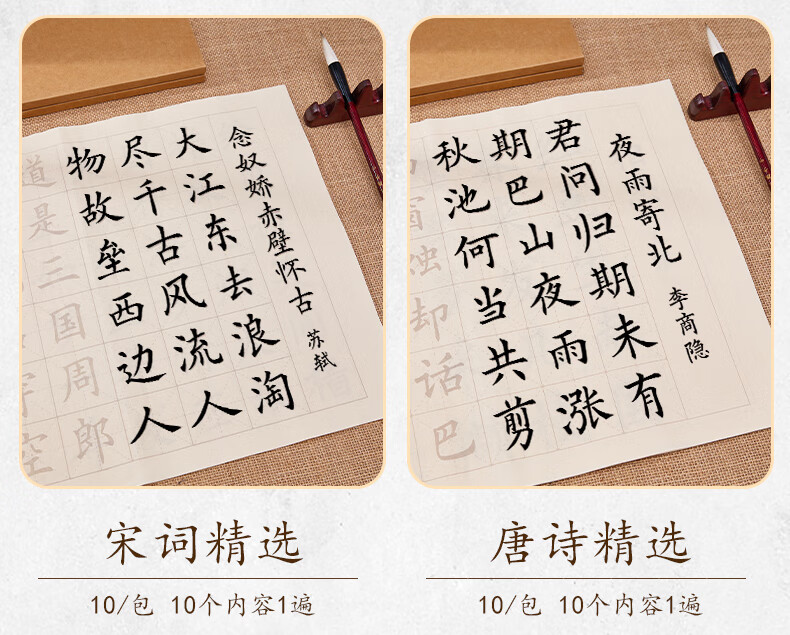 念奴娇赤壁怀古
苏轼
大江东去浪淘
尽千古风流人
物故垒西边人
道是三国周郎
空
宋词精选
10/包 10个内容1遍
夜雨寄北
李商隐
君问归期未有
期巴山夜雨涨
秋池何当共剪
窗烛却话巴
唐诗精选
10/包 10个内容1遍